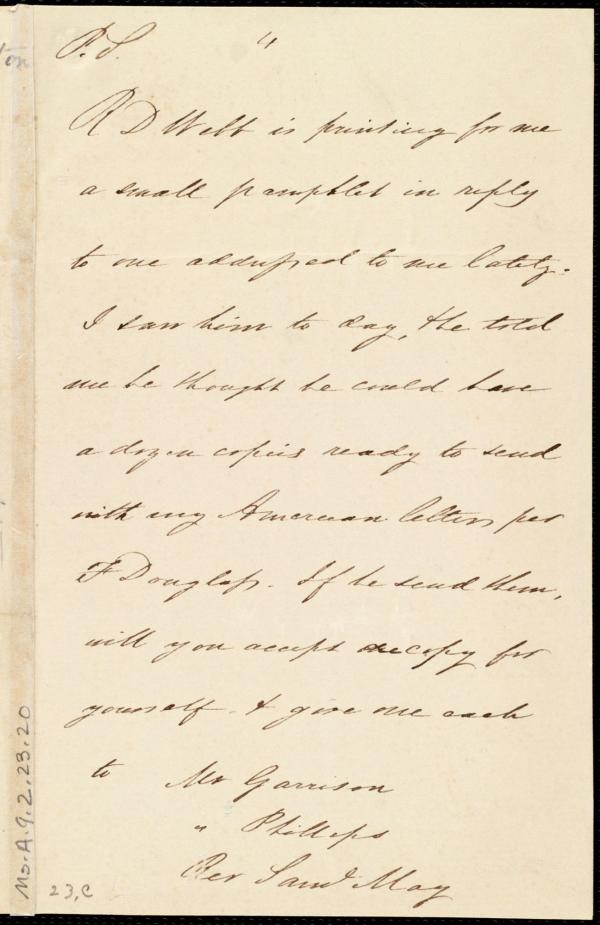 P.S. "
R D Webb is printing for me
a small pamphlet in reply
to one addressed to me lately.
I saw him to day, & he told
me he thought he could have
a dozen copies ready to send
with my American letters per
F Douglass. If he send them,
will you accept one copy for
yourself & give one each
to Mr Garrison
" Phillips
Rev Saml May
Ms.A.9.2.23.20
23,C